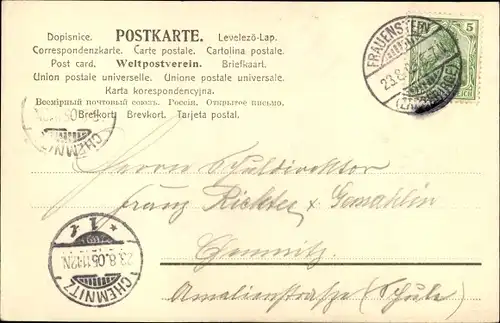 Dopisnice. POSTKARTE. Levelező-Lap.
Correspondenzkarte. Carte postale. Cartolina postale.
Post card. Weltpostverein. Briefkaart.
Union postale universelle. Unione postale universale.
Karta korespondencyjna.
Всемірный почтовый союзъ. Россія. Открытое письмо.
Brefkort. Brevkort. Tarjeta postal.
FRAUENSTEIN
23.8.
5
REICH
CHEMNITZ
Herrn Schuldirektor
Franz Richter & Gemahlin
Chemnitz
Amalienstraße (Schule)
1
23.8.05.11-12N.
CHEMNITZ